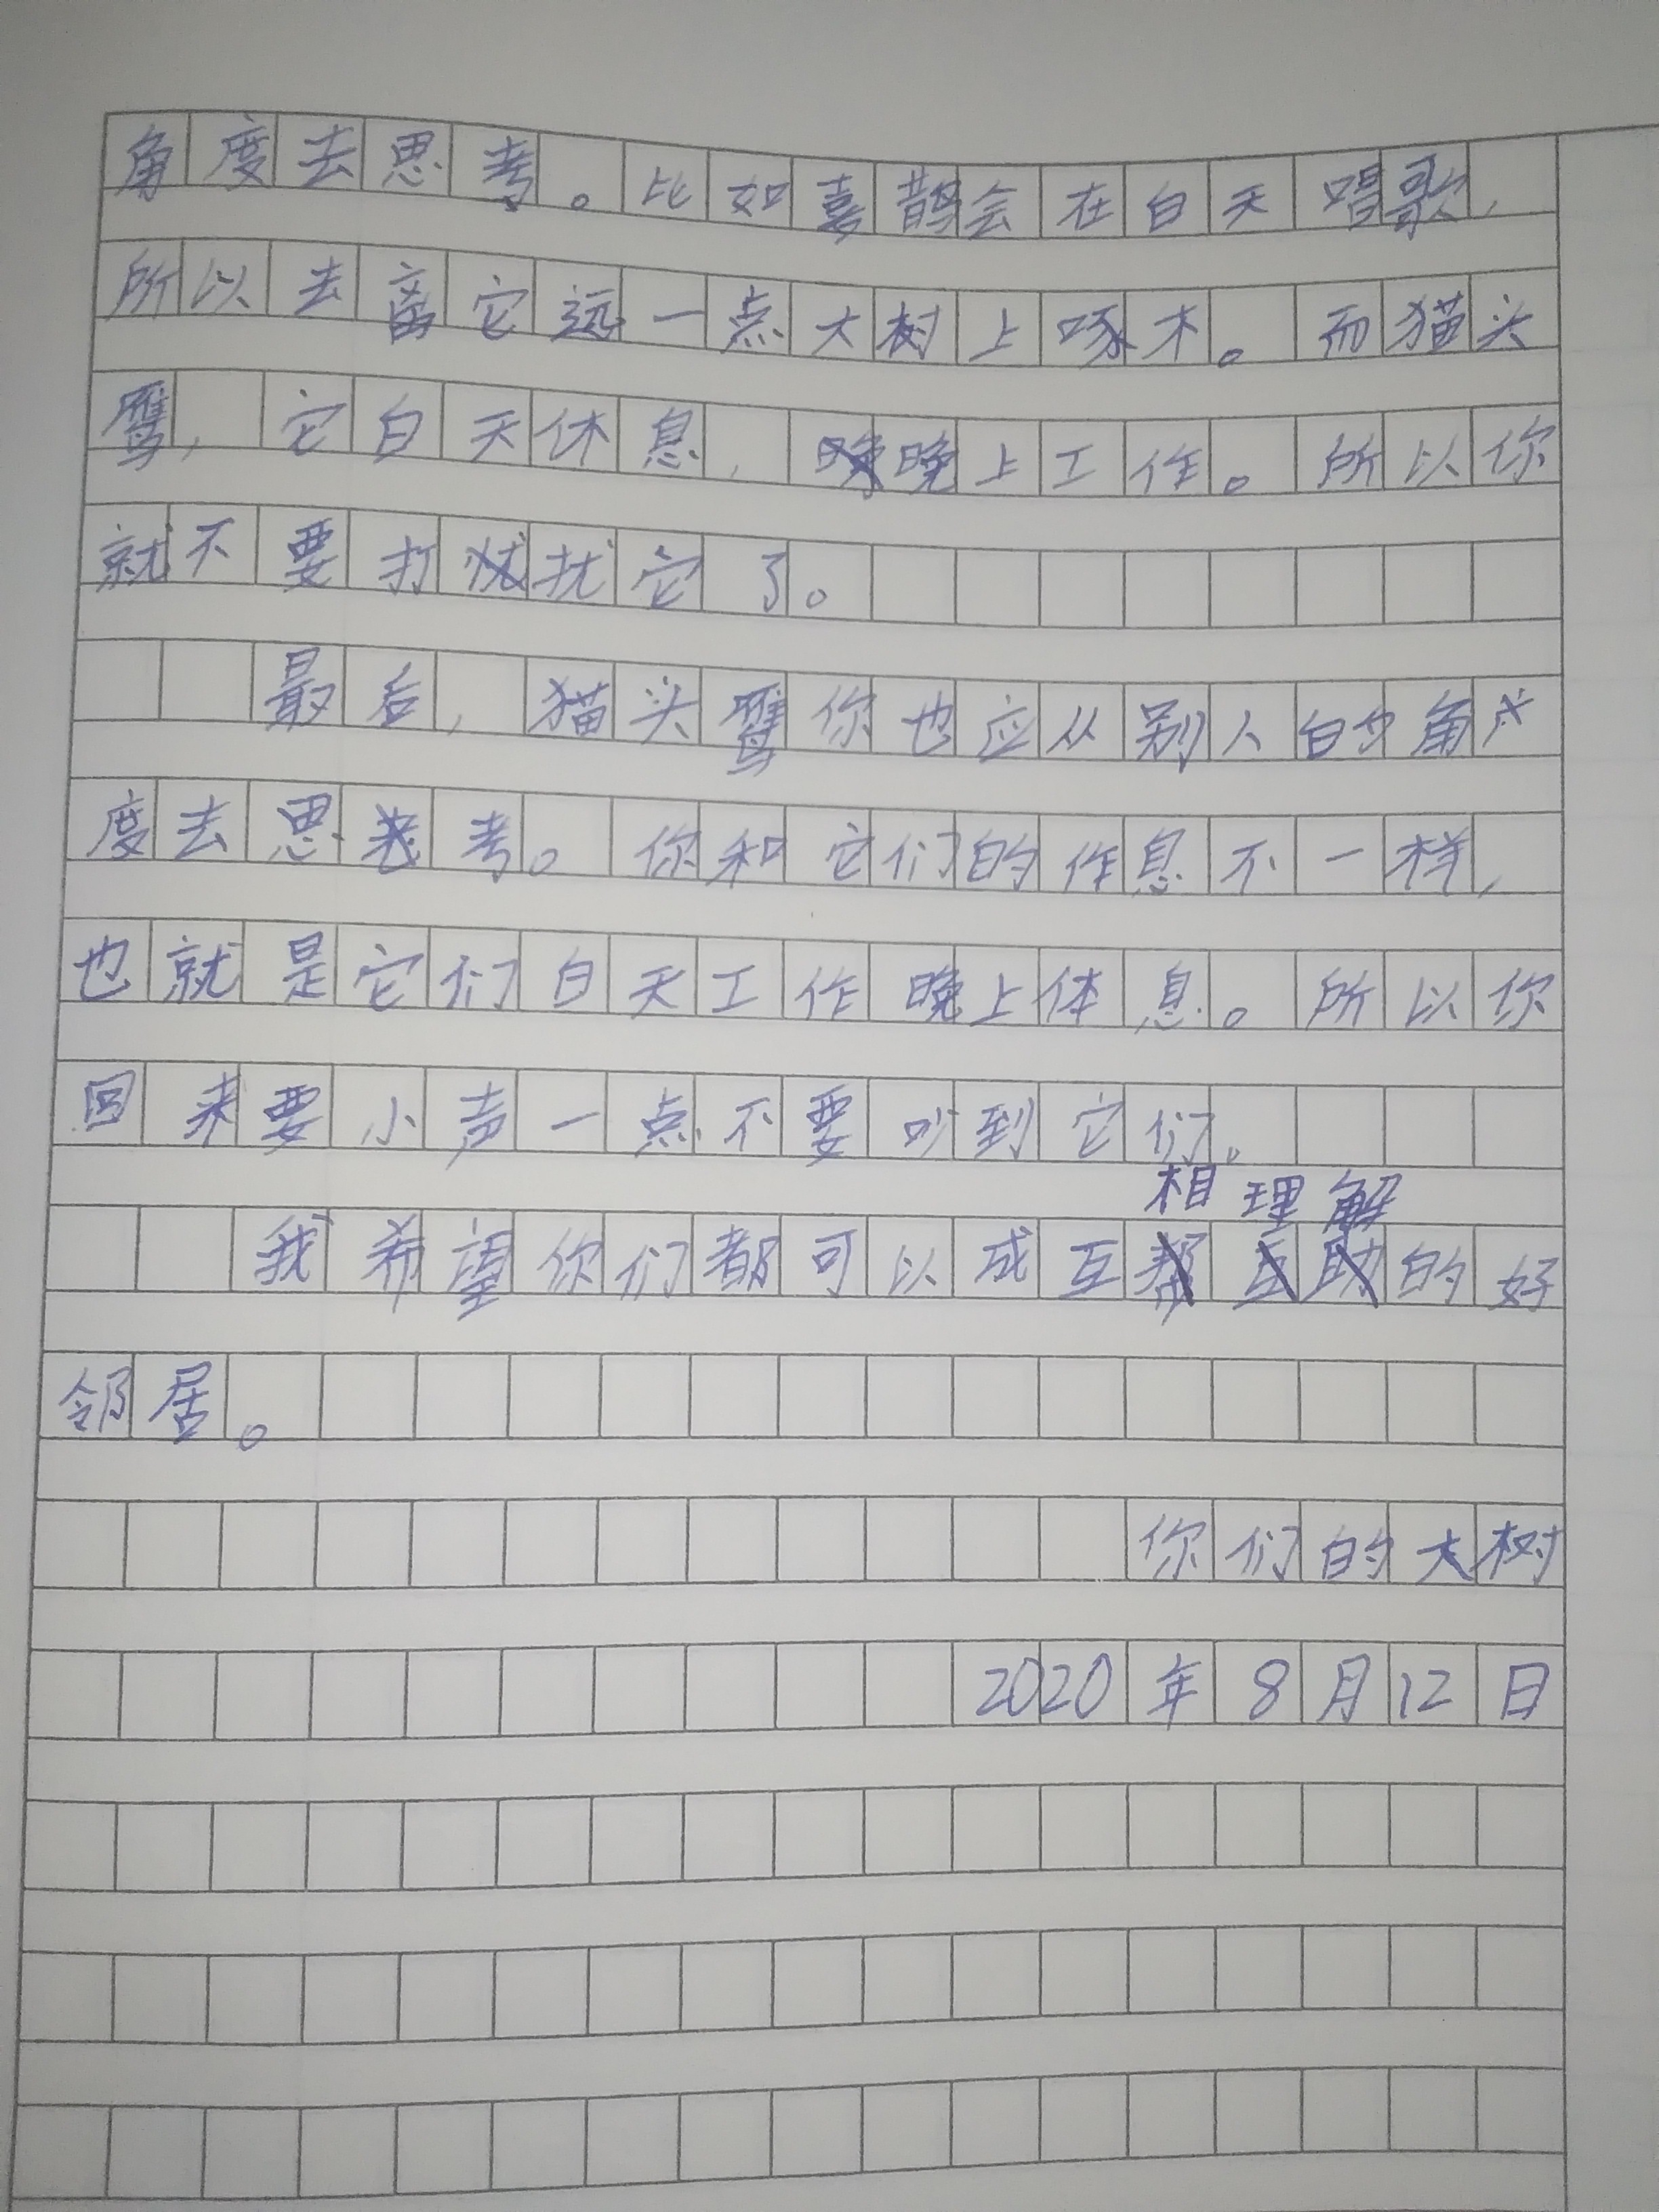 角度去思考。比如喜鹊会在白天唱歌，
所以去离它远一点大树上啄木。而猫头
鹰，它白天休息，晚上工作。所以你
就不要打扰它了。
最后，猫头鹰你也应从别人的角
度去思考。你和它们的作息不一样，
也就是它们白天工作晚上体息。所以你
回来要小声一点不要吵到它们。
相理解
我希望你们都可以成互的好
邻居。
你们的大树
2020年8月12日